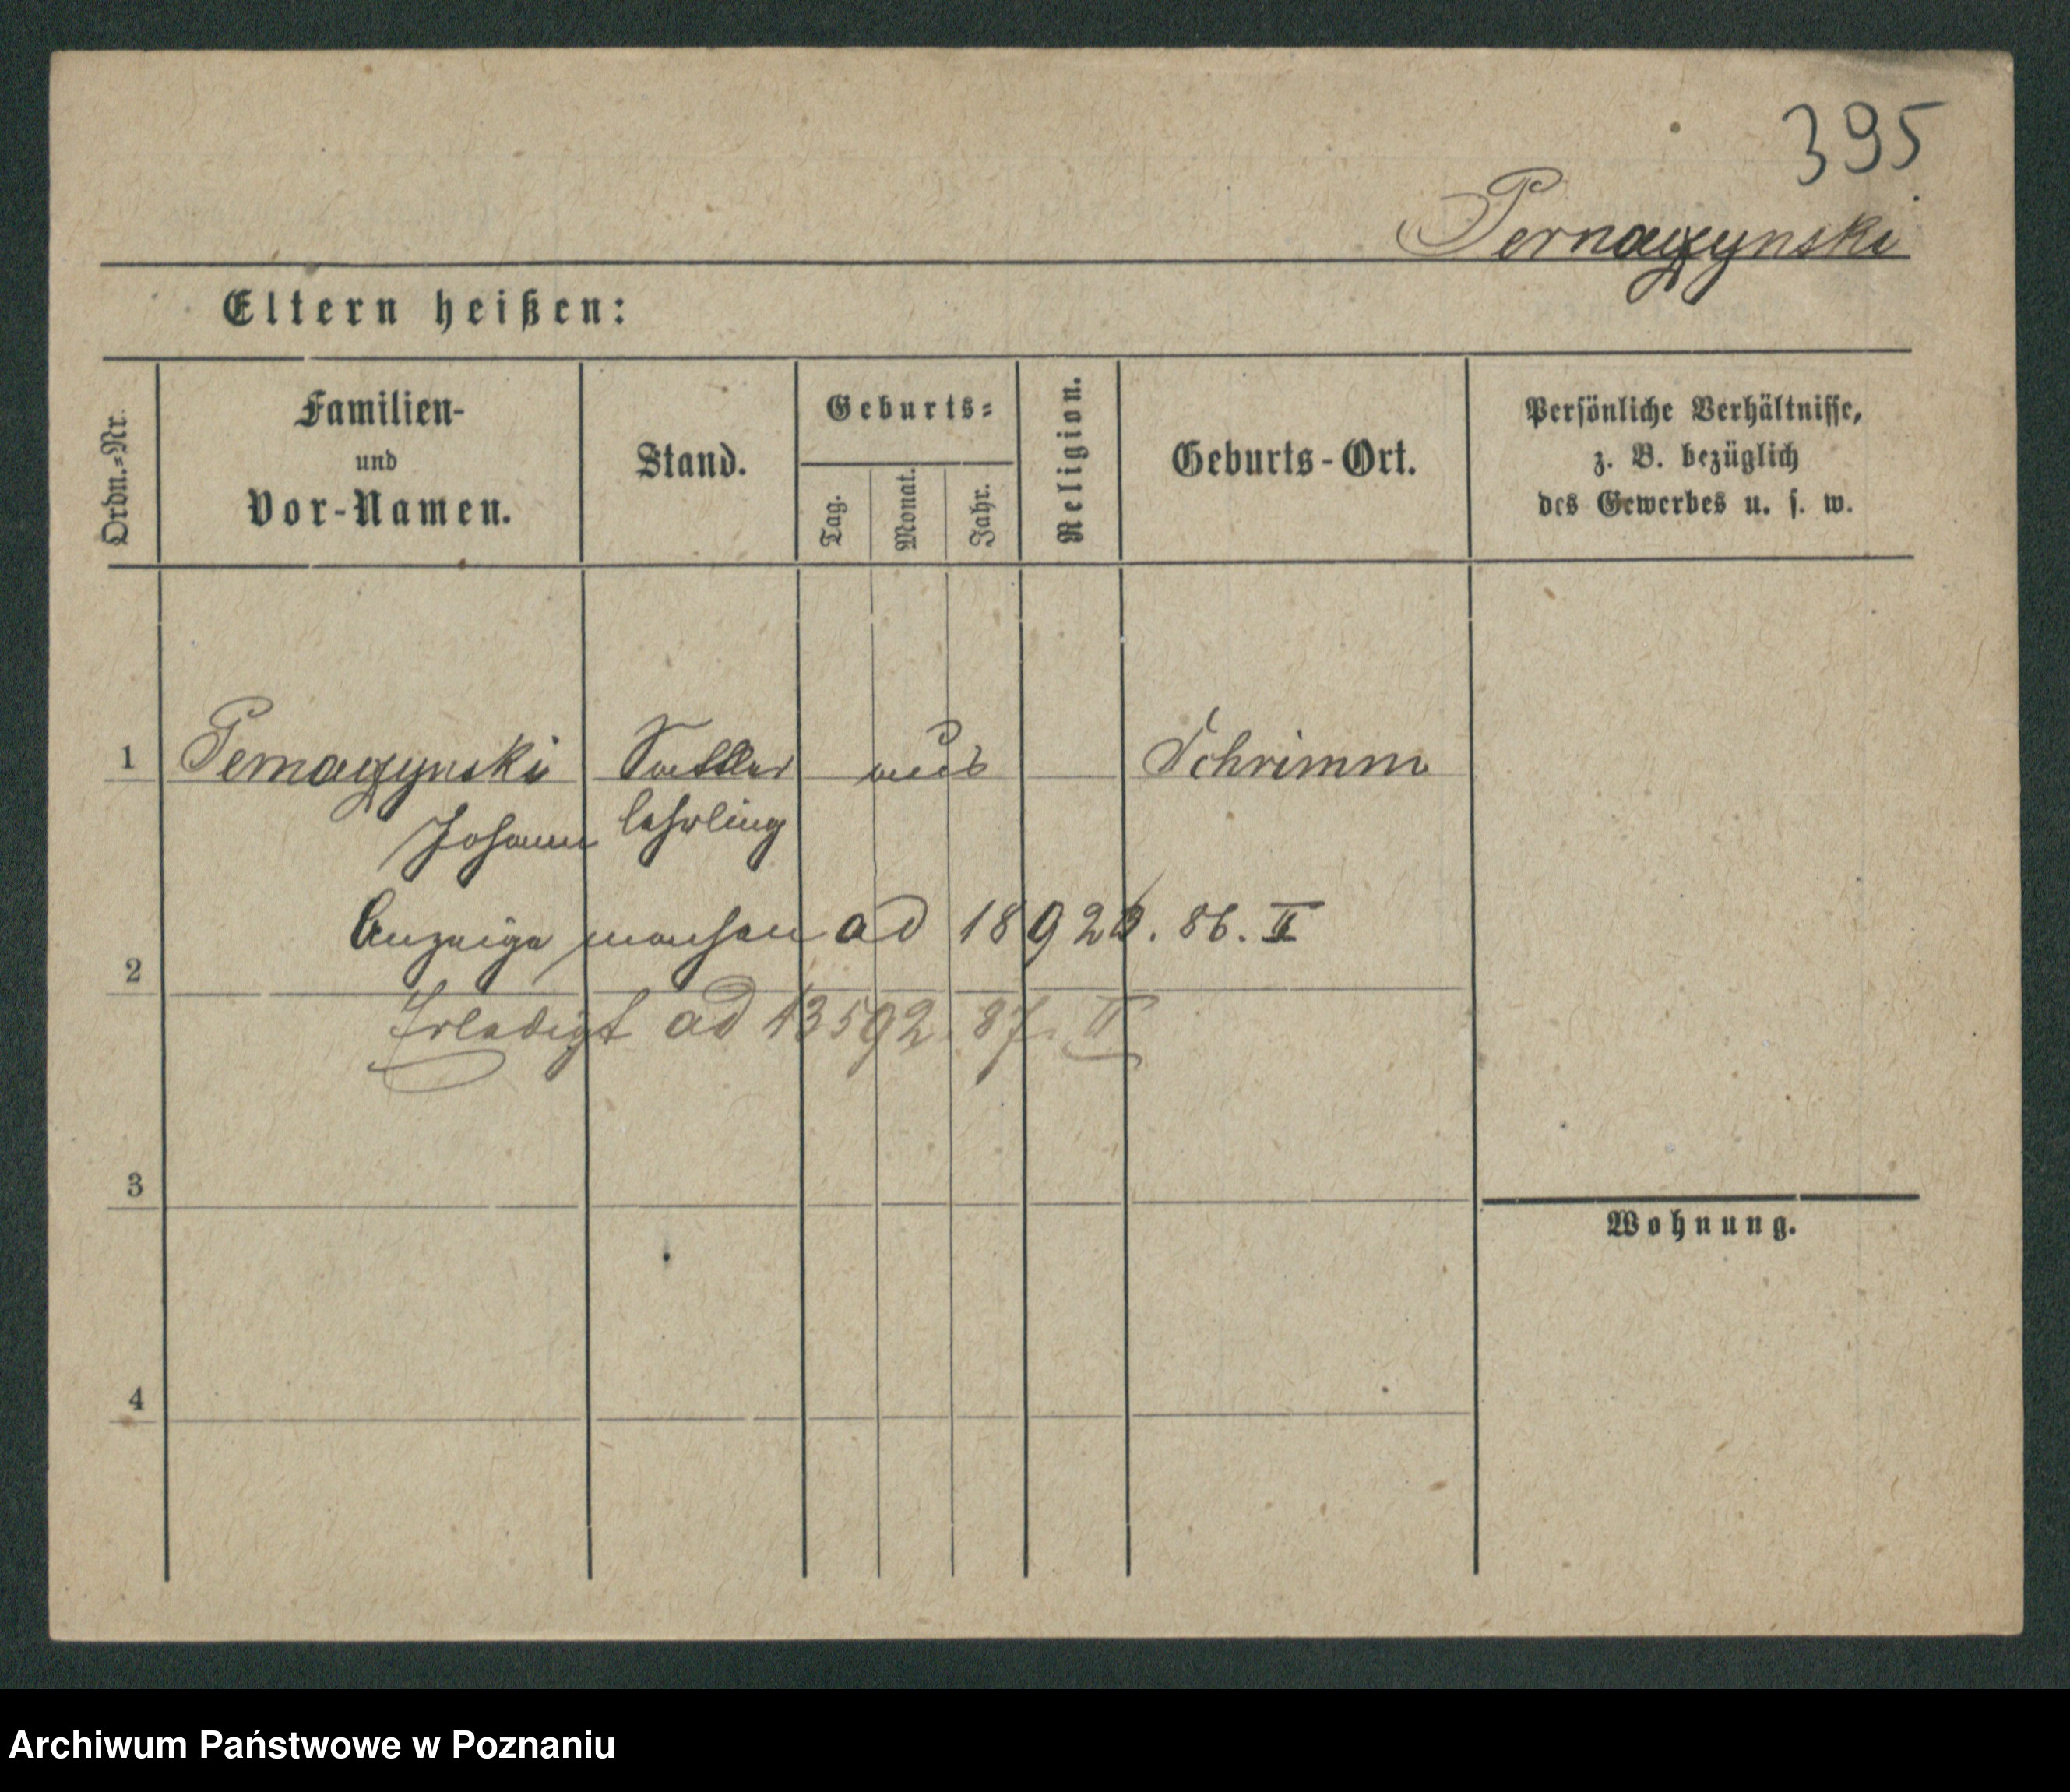 395
Pernaczynski
Eltern heißen:
Ordn.-Nr.
Familien-
und
Vor-Namen.
Stand.
Geburts-
Tag.
Monat.
Jahr.
Religion.
Geburts-Ort.
Persönliche Verhältnisse,
z. B. bezüglich
des Gewerbes u. s. w.
1 Pernaczynski Sattler aus Schrimm
Johann lehrling
Anzeige machen ad 18926. 86. II
2
Erledigt ad 13592. 87. II
3
Wohnung.
4
Archiwum Państwowe w Poznaniu